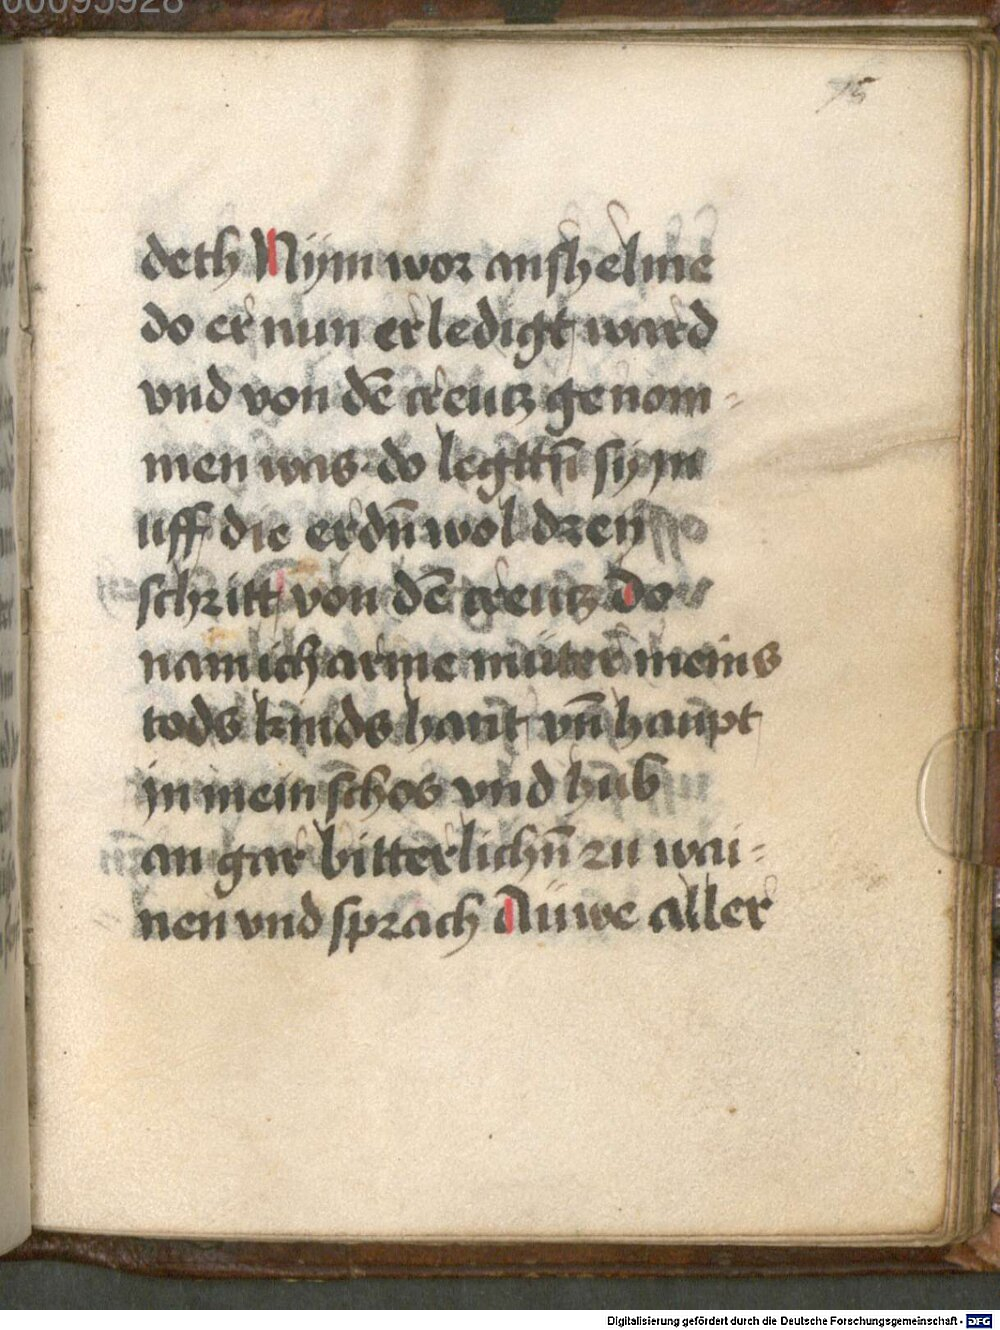 00095928
75
deth Nÿm wor anshelme
do er nun erledigt ward
vnd von dē creutz genom-
men was do legttn̄ sÿ jn
uff die erdn̄ wol dreÿ
schritt von dē creutz do
nam ich arme mu̇ter meins
tods kinds haut vn̄ haupt
jn mein schos vnd hub
an gar bitterlichn̄ zu wai-
nen vnd sprach Auwe aller
Digitalisierung gefördert durch die Deutsche Forschungsgemeinschaft - DFG